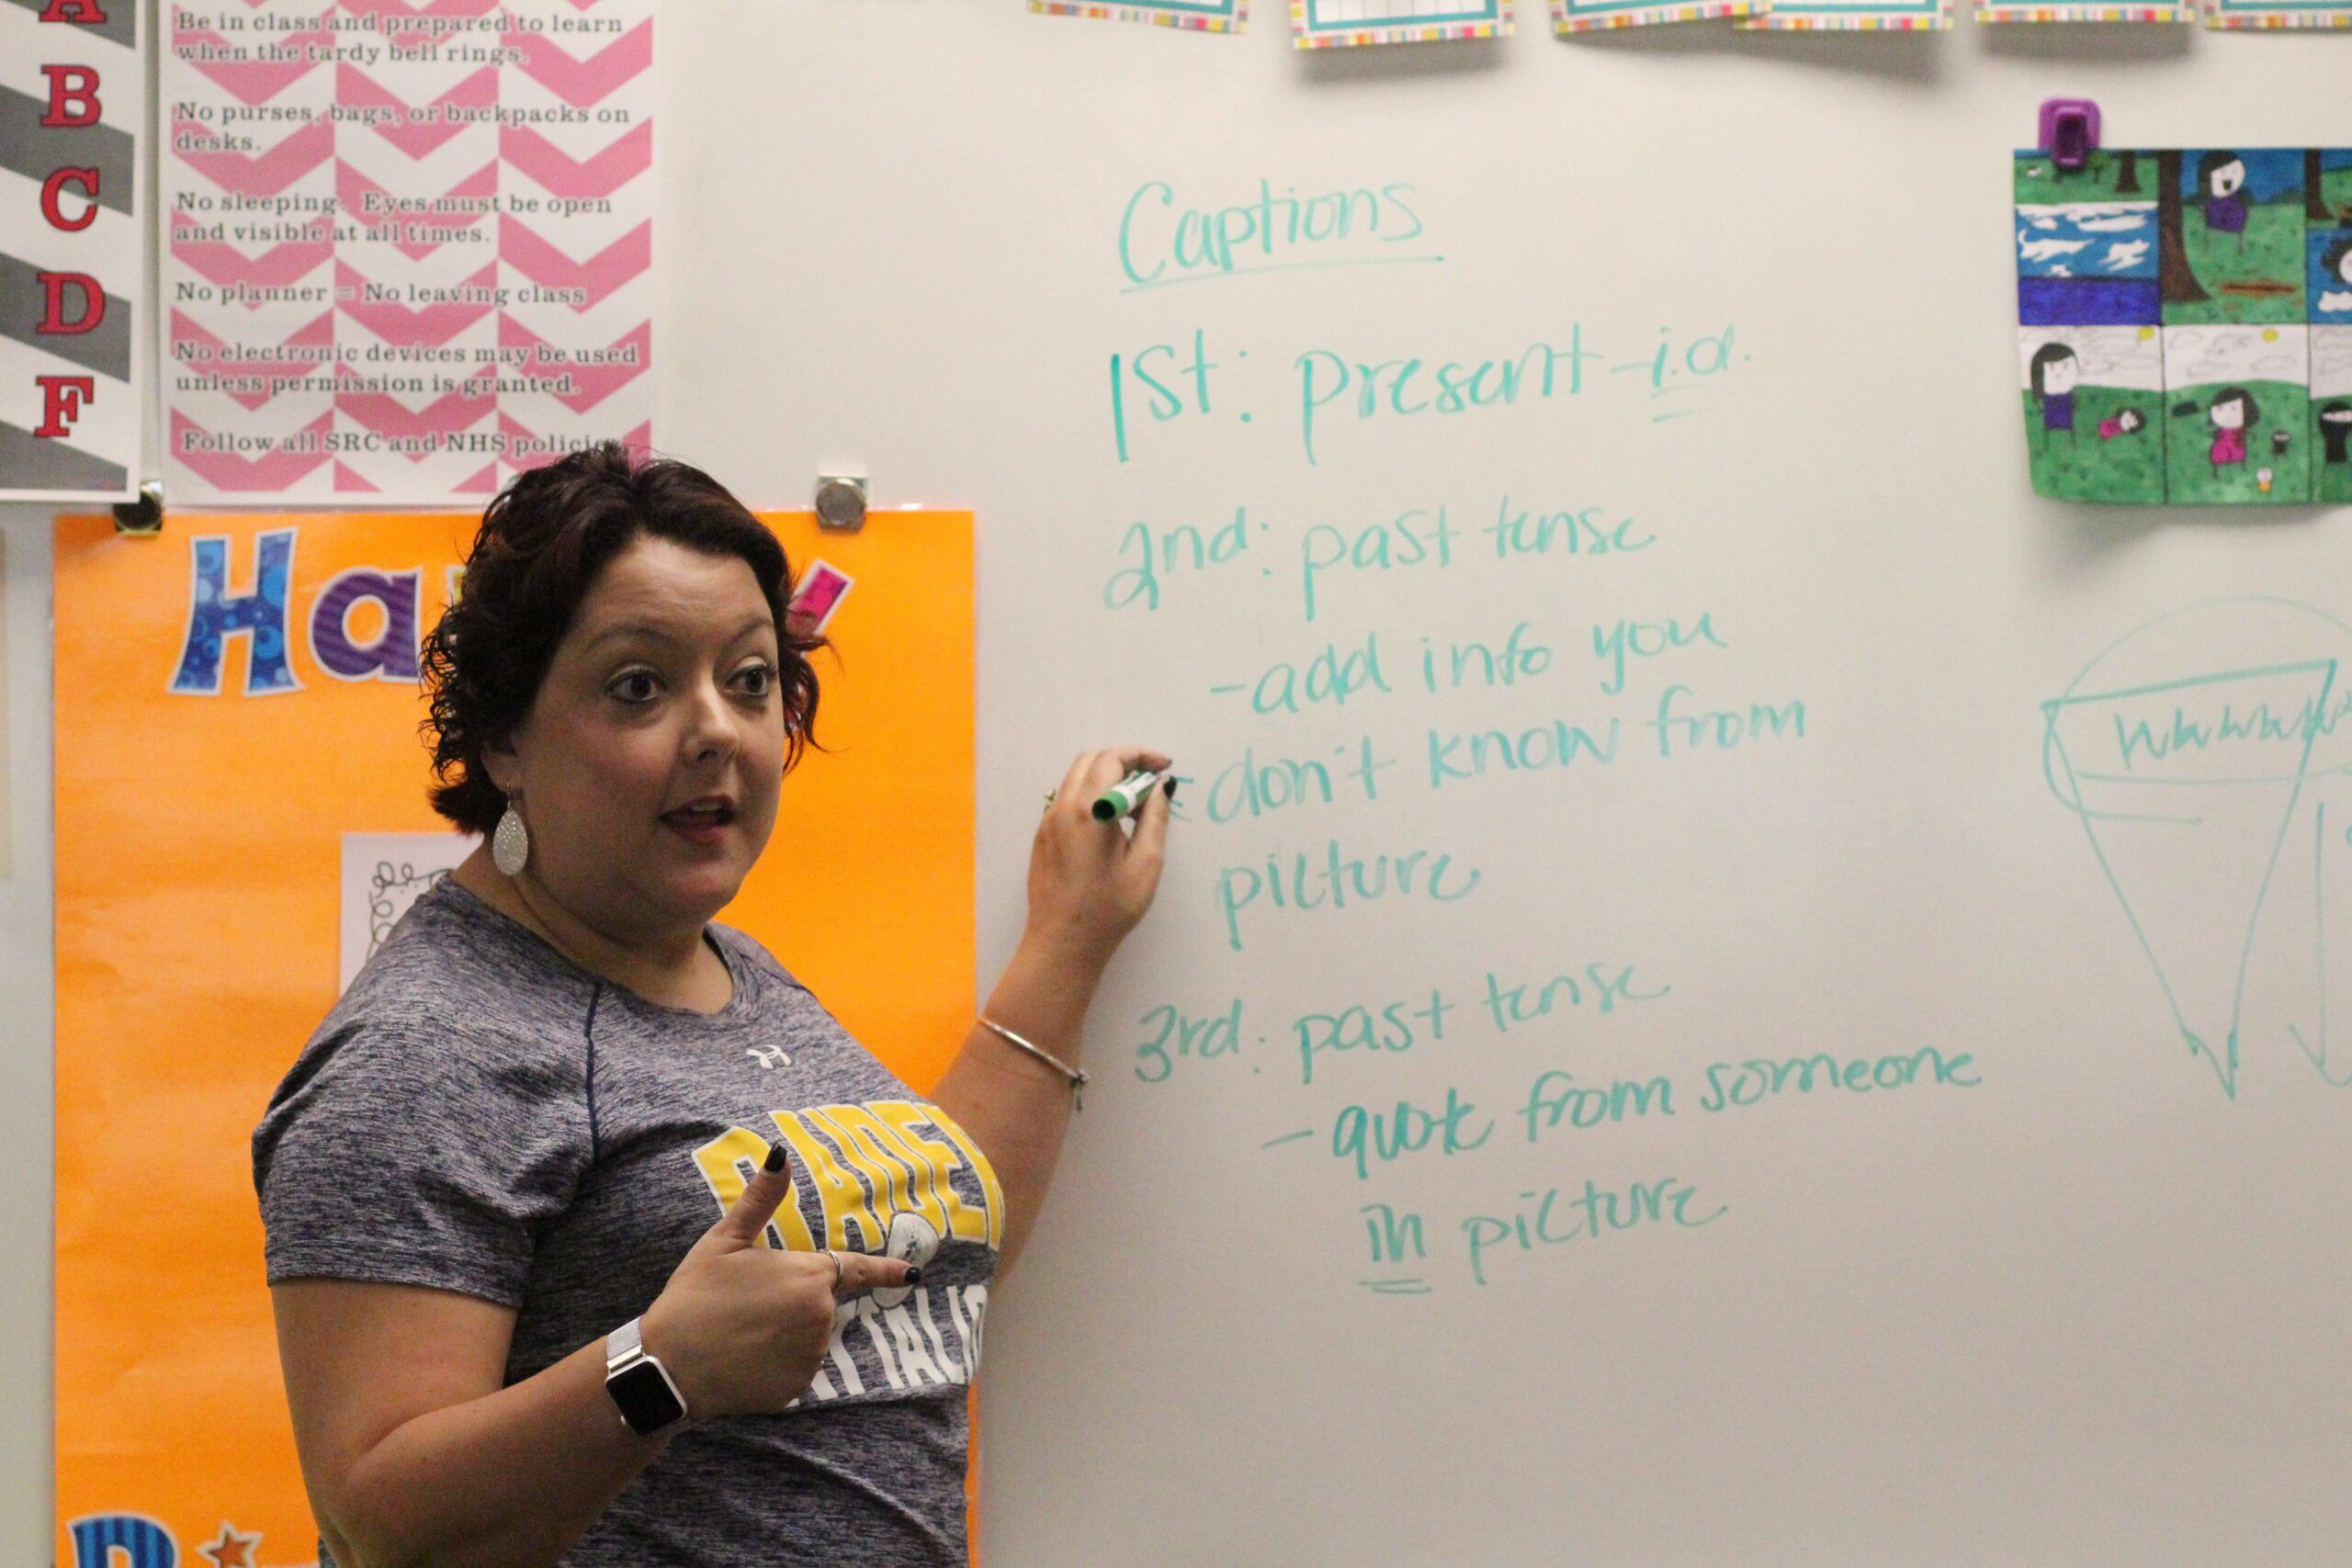 A
B
C
D
F
Be in class and prepared to learn
when the tardy bell rings.
No purses, bags, or backpacks on
desks.
No sleeping. Eyes must be open
and visible at all times.
No planner = No leaving class
No electronic devices may be used
unless permission is granted.
Follow all SRC and NHS
Captions
1st: present - i.d.
2nd: past tense
- add info you
don't know from
picture
3rd: past tense
- quote from someone
in picture